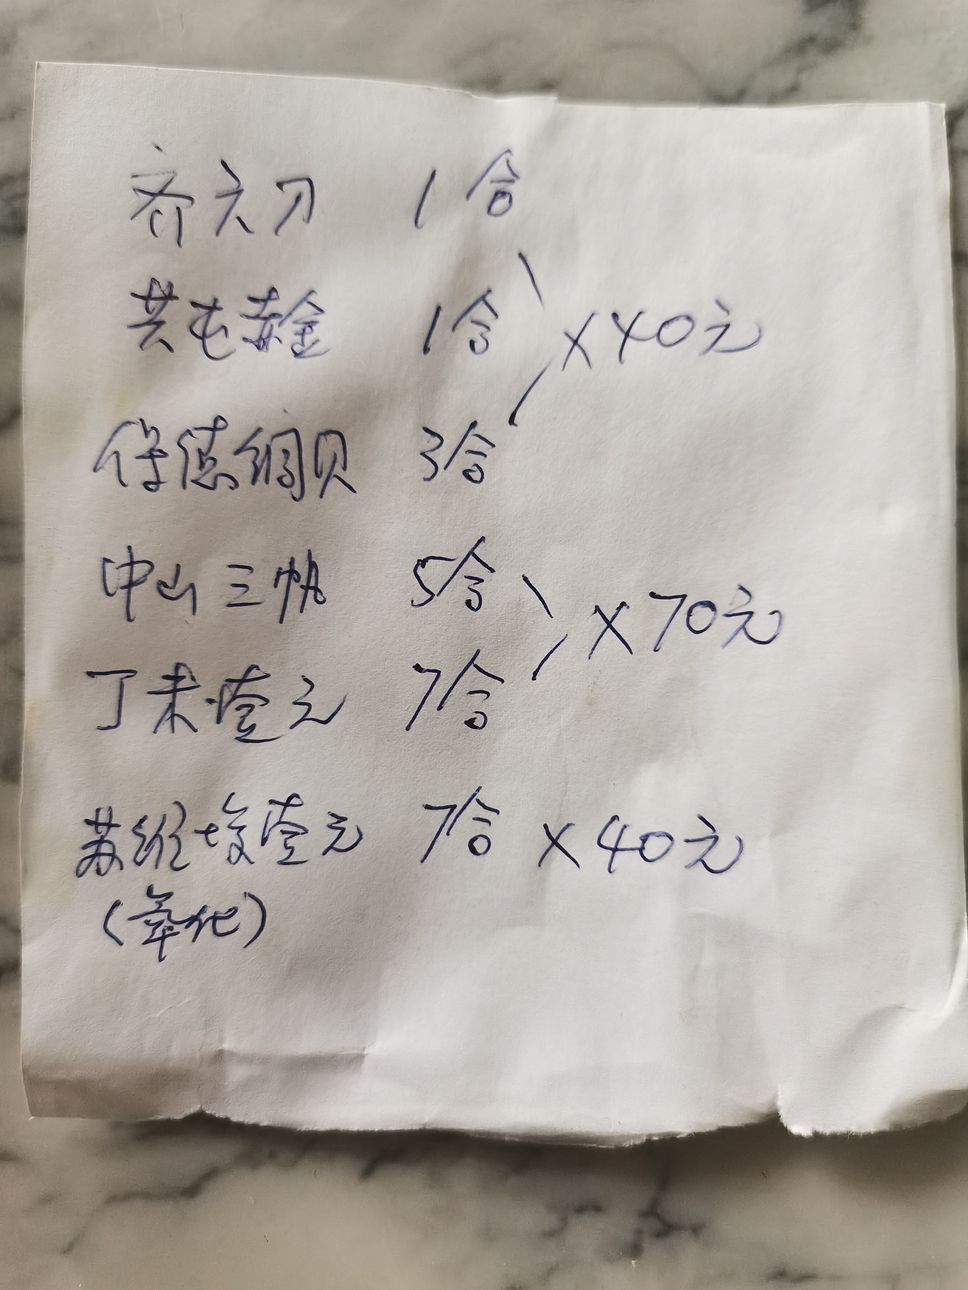 齐六刀 1合
共屯赤金 1合
×40元
保德铜贝 3合
中山三帆 5合
×70元
丁未壹元 7合
苏维埃壹元 7合 ×40元
(氧化)